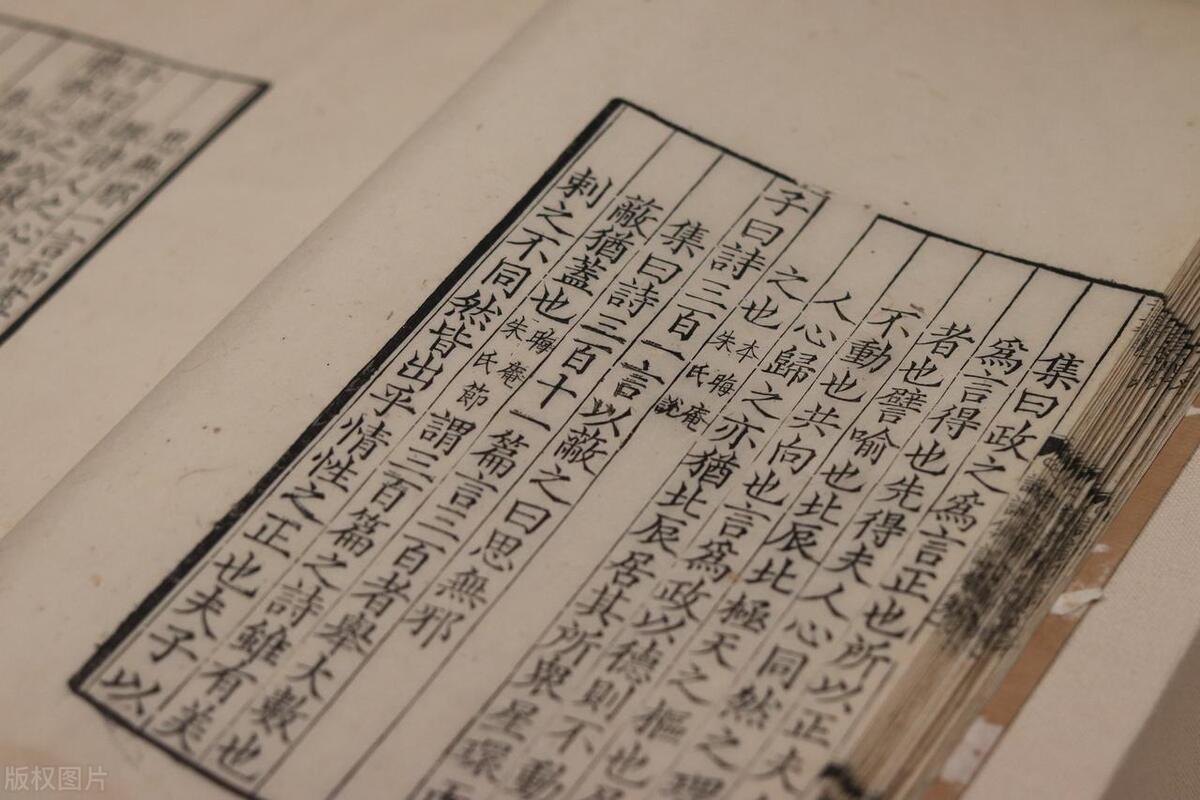 集曰政之爲言正也所以正夫
爲言得也先得夫人心同然之理
者也譬喻也北辰北極天之樞也
不動也共向也言爲政以德則不動
人心歸之亦猶北辰居其所衆星環
之也本晦庵朱氏說
子曰詩三百一言以蔽之曰思無邪
集曰詩三百十一篇言三百者舉大數也
蔽猶蓋也晦庵朱氏節謂三百篇之詩雖有美
刺之不同然皆出乎情性之正也夫子以
版权图片